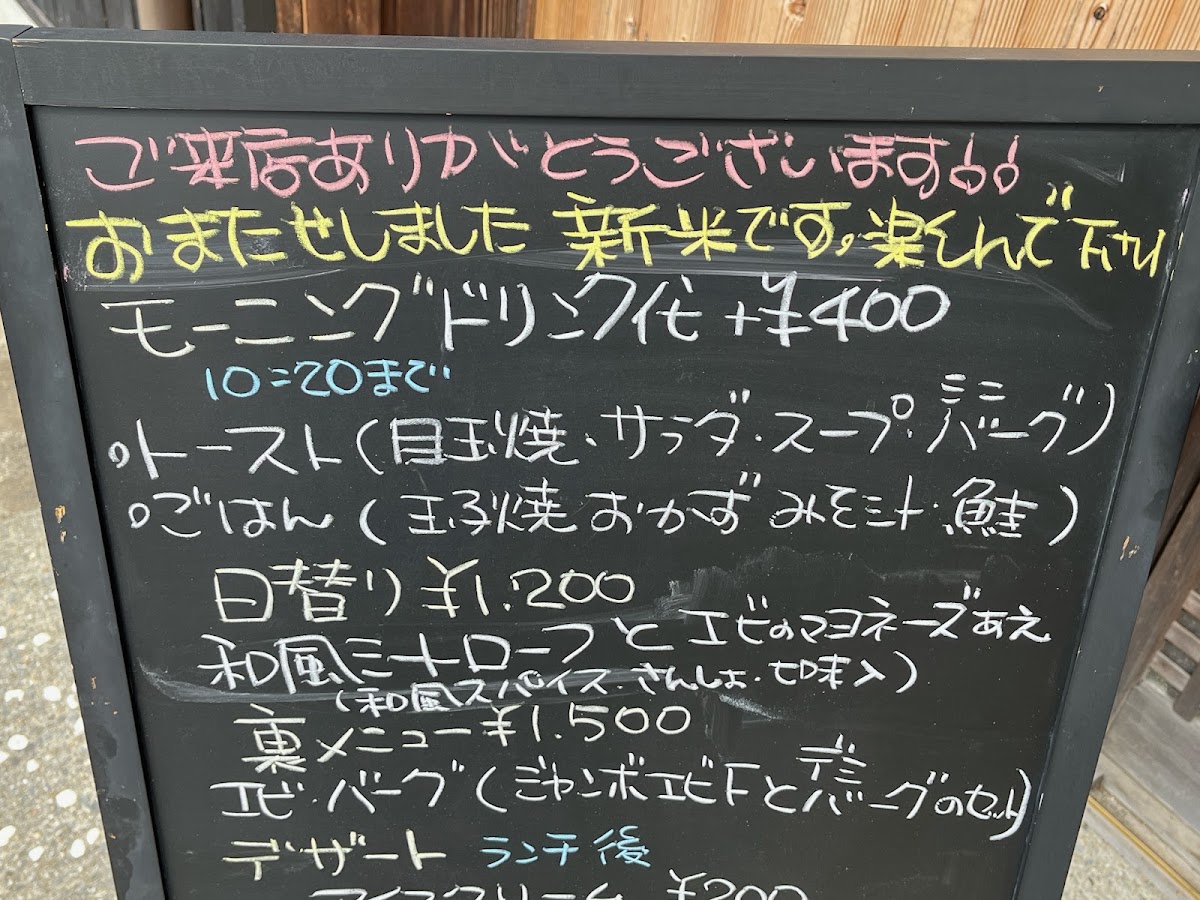 ご来店ありがとうございます!!
おまたせしました 新米です。楽しんで下さい
モーニングドリンク代+¥400
10:20まで
トースト(目玉焼・サラダ・スープ・ミニバーグ)
ごはん(玉子焼 おかず みそ汁・鮭)
日替り ¥1.200
和風ミートローフと エビのマヨネーズあえ
(和風スパイス・さんしょ・七味入)
裏メニュー ¥1.500
エビ・バーグ(ジャンボエビFとデミバーグのセット)
デザート ランチ後
アイスクリーム ¥200